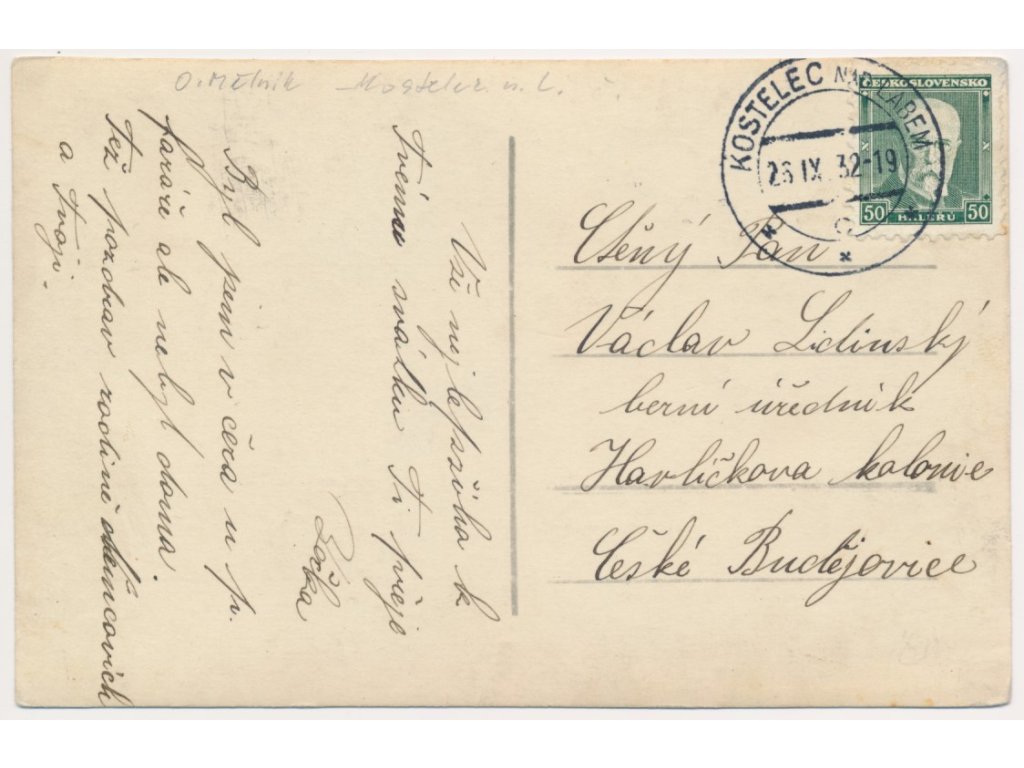 O. Mělník Kostelec n. L.
KOSTELEC NAD LABEM
26 IX 32-19
ČESKOSLOVENSKO
50 HALÉŘŮ 50
Ctěný Pan
Václav Lidinský
berní úředník
Havlíčkova kolonie
České Budějovice
Vší nejlepšího k
Tvému svátku Ti přeje
Byl jsem včera u p.
faráře ale nebyl doma.
Též pozdrav rodině
a Tvojí.